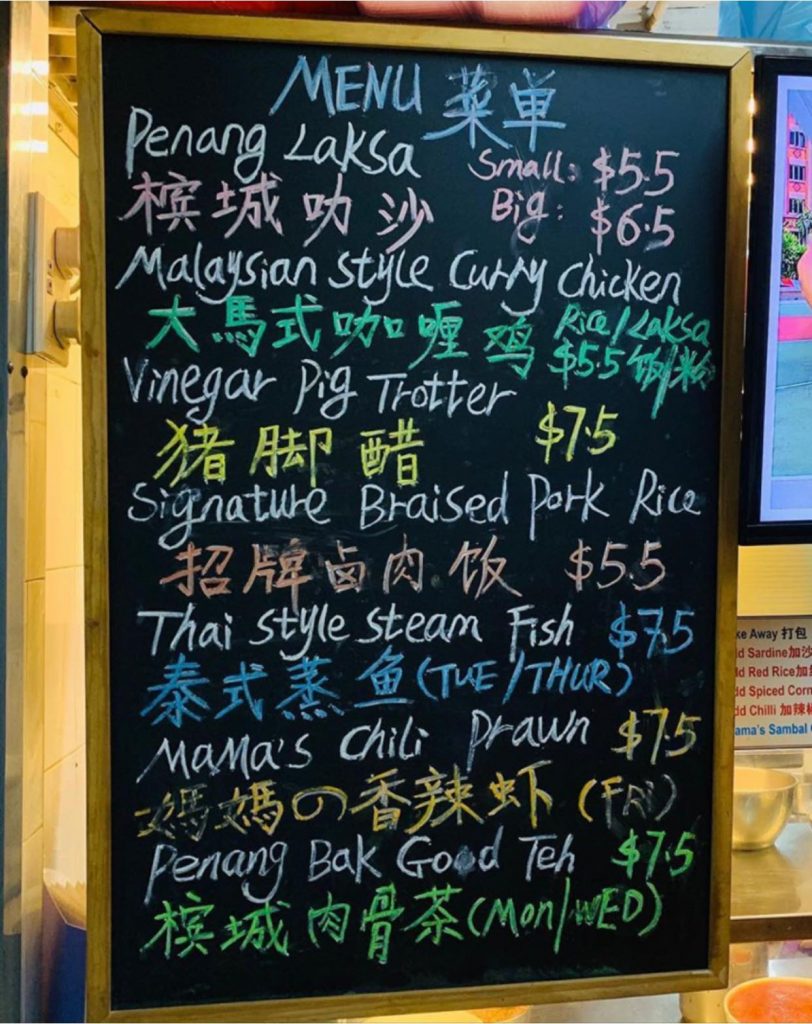 MENU 菜单
Penang Laksa Small: $5.5
槟城叻沙 Big: $6.5
Malaysian Style Curry Chicken
大馬式咖喱鸡 Rice/Laksa
$5.5 饭/粉
Vinegar Pig Trotter
猪脚醋 $7.5
Signature Braised Pork Rice
招牌卤肉饭 $5.5
Thai Style Steam Fish $7.5
泰式蒸鱼(TUE/THUR)
MaMa's Chili Prawn $7.5
媽媽の香辣虾 (FRI)
Penang Bak Good Teh $7.5
槟城肉骨茶(Mon/WED)
ke Away 打包
d Sardine加沙
d Red Rice加
dd Spiced Corn
dd Chilli 加辣
ama's Sambal